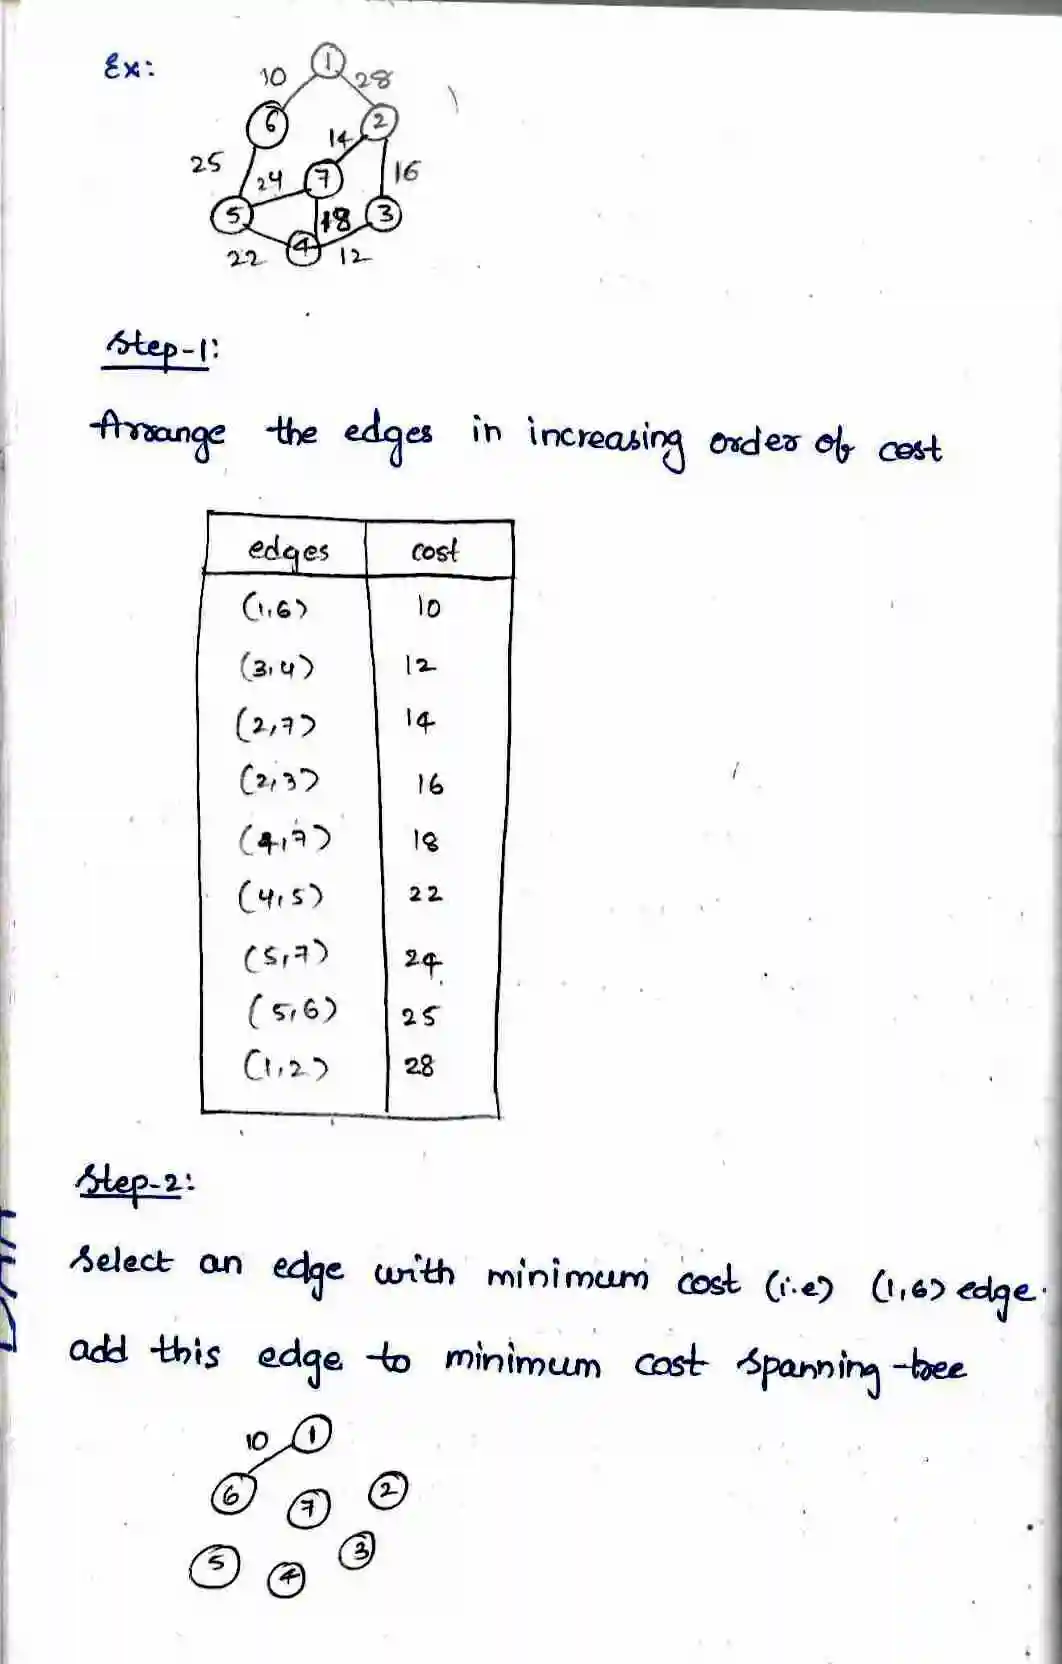 Ex:
10
1
28
6
2
14
25
24
7
16
5
18
3
22
4
12
Step-1:
Arrange the edges in increasing order of cost
edges cost
(1,6) 10
(3,4) 12
(2,7) 14
(2,3) 16
(4,7) 18
(4,5) 22
(5,7) 24
(5,6) 25
(1,2) 28
Step-2:
Select an edge with minimum cost (i.e) (1,6) edge.
add this edge to minimum cost spanning tree
10
1
6
7
2
5
4
3